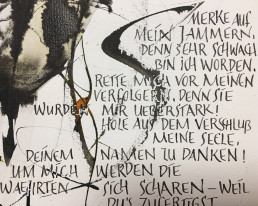 MERKE AUF
MEIN JAMMERN,
DENN SEHR SCHWACH
BIN ICH WORDEN.
RETTE MICH VOR MEINEN
VERFOLGERN, DENN SIE
WURDEN MIR UEBERSTARK!
HOLE AUS DEM VERSHLUß
MEINE SEELE,
DEINEM NAMEN ZU DANKEN!
UM MICH WERDEN DIE
SICH SCHAREN–WEIL
DU'S ZUFERTIGST